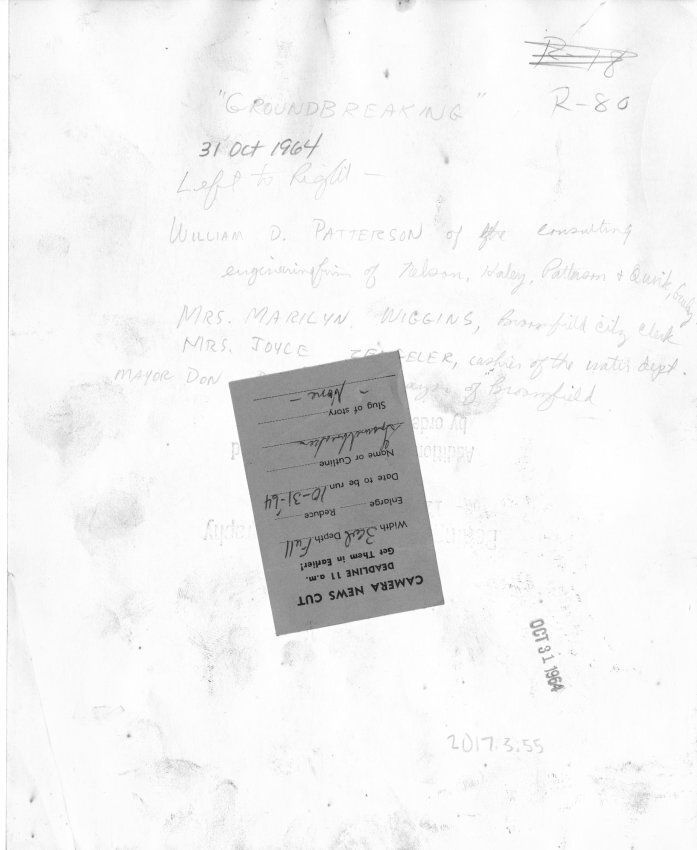 R-18
"GROUNDBREAKING" R-80
31 Oct 1964
Left to Right -
WILLIAM D. PATTERSON of the consulting
engineering firm of Nelson, Haley, Patterson + Quirk,
MRS. MARILYN WIGGINS, Broomfield city clerk
MRS. JOYCE ELER, cashier of the water dept.
MAYOR DON of Broomfield
CAMERA NEWS CUT
DEADLINE 11 a.m.
Get Them in Earlier!
Width 3col Depth Full
Enlarge Reduce
Date to be run 10-31-64
Name or Cutline
Groundbreaking
Slug of story
- None -
OCT 31 1964
2017.3.55